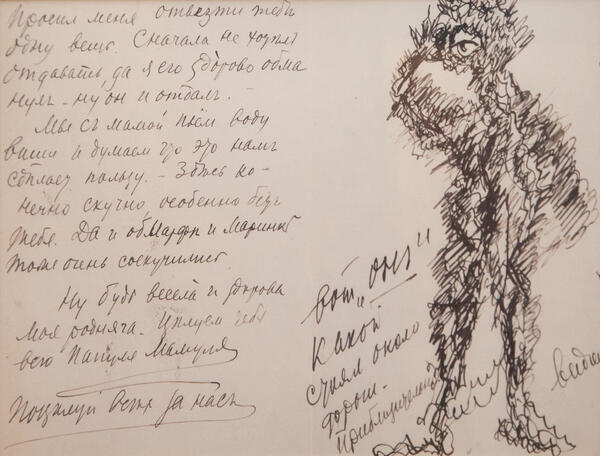 Просил меня отвезти тебѣ
одну вещь. Сначала не хотѣлъ
отдавать, да я его здорово обма
нулъ - ну он и отдалъ.
Мы съ мамой пьём воду
ваши и думаем что это намъ
сдѣлает пользу. - Здѣсь ко-
нечно скучно, особенно безъ
тебя. Да и об
тоже очень соскучились.
Ну будь весела и здорова
моя родняча. Цѣлуем тебя
всю Папуля Мамуля
Поцѣлуй всѣхъ за насъ
вот "онъ"
какой
около
Приблизительно